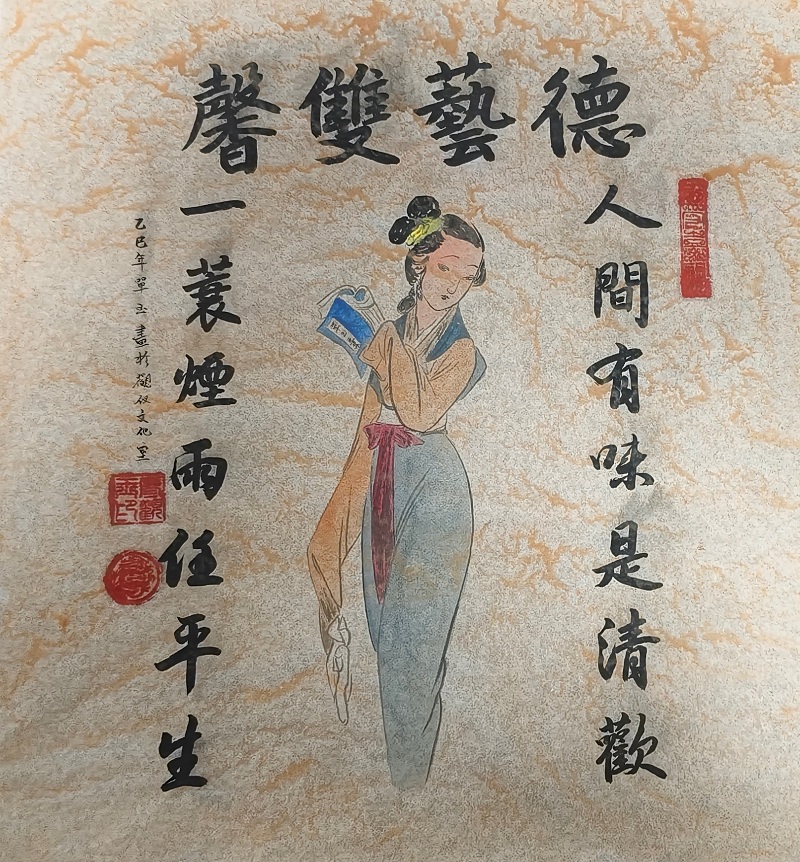 德藝雙馨
人間有味是清歡
一蓑煙雨任平生
乙巳年單玉畫於顧仅文化里